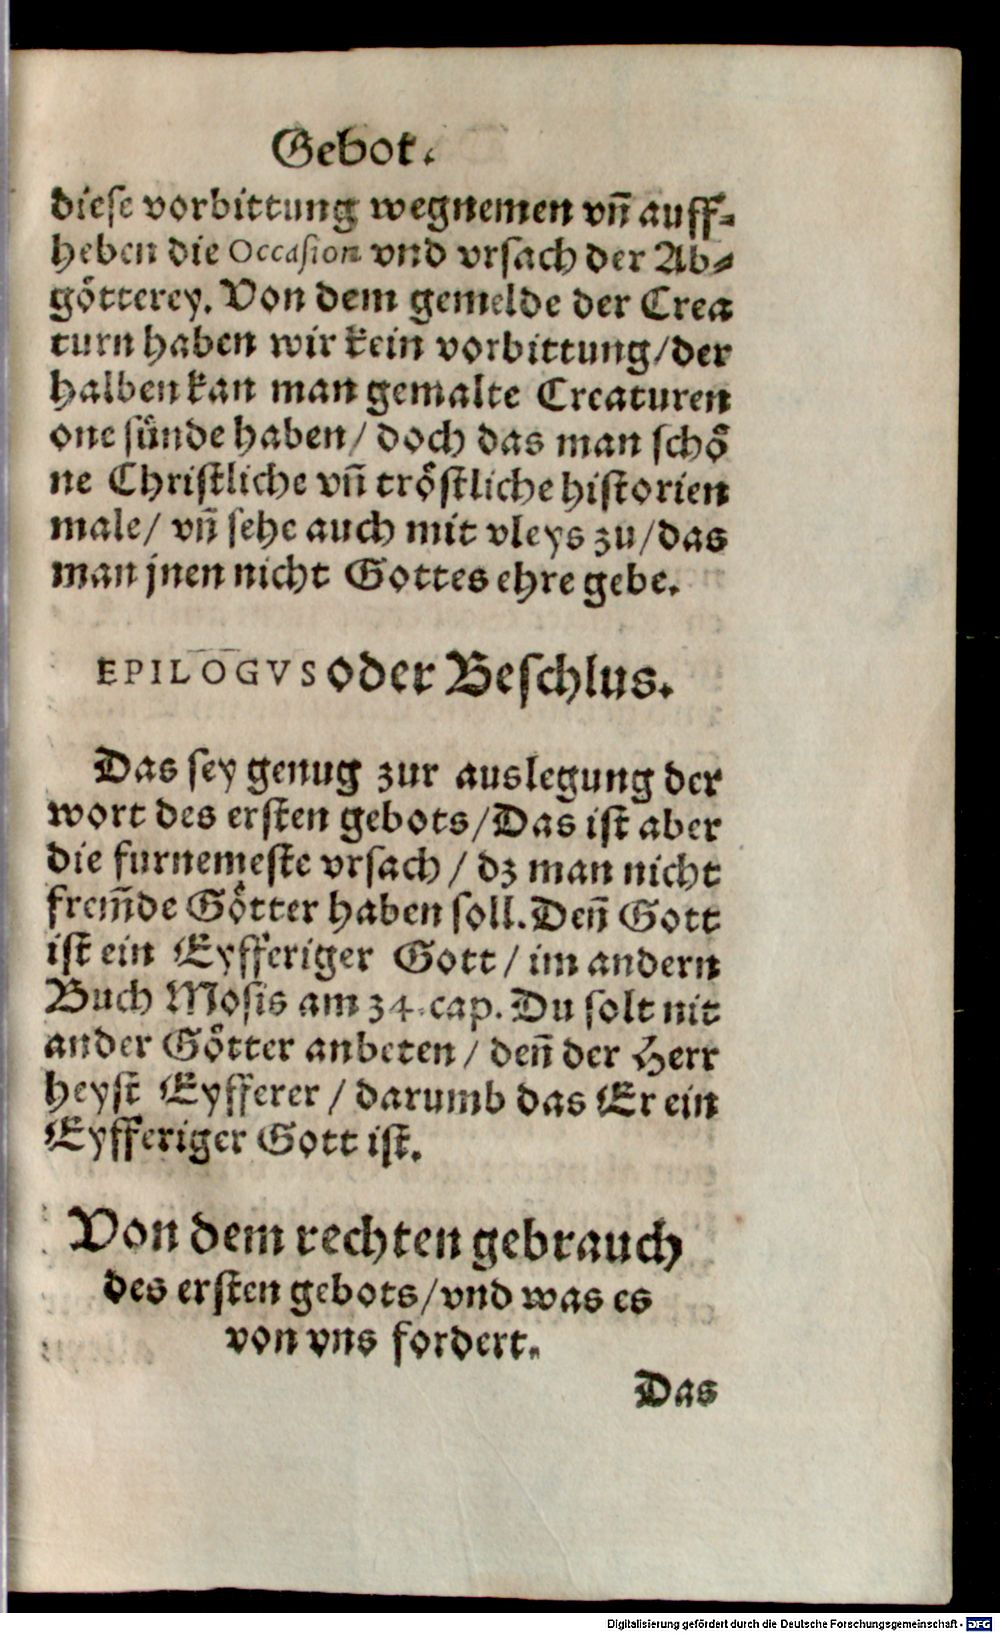 Gebot.
diese vorbittung wegnemen vn̄ auff-
heben die Occasion vnd vrsach der Ab-
goͤtterey. Von dem gemelde der Crea
turn haben wir kein vorbittung/der
halben kan man gemalte Creaturen
one suͤnde haben/ doch das man schoͤ
ne Christliche vn̄ troͤstliche historien
male/ vn̄ sehe auch mit vleys zu/das
man jnen nicht Gottes ehre gebe.
EPILOGVS oder Beschlus.
Das sey genug zur auslegung der
wort des ersten gebots/Das ist aber
die furnemeste vrsach / dz man nicht
frem̄de Goͤtter haben soll. Den̄ Gott
ist ein Eyfferiger Gott / im andern
Buch Mosis am 34. cap. Du solt nit
ander Goͤtter anbeten / den̄ der Herr
heyst Eyfferer / darumb das Er ein
Eyfferiger Gott ist.
Von dem rechten gebrauch
des ersten gebots/vnd was es
von vns fordert.
Das
Digitalisierung gefördert durch die Deutsche Forschungsgemeinschaft - DFG